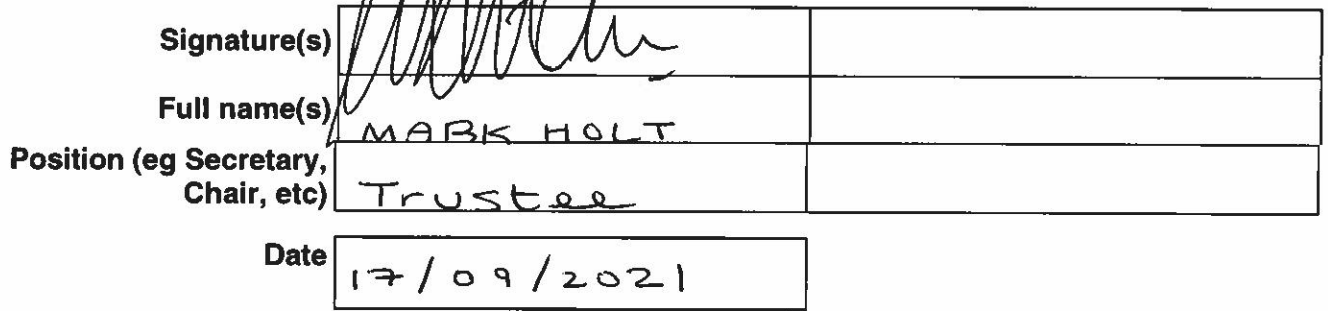 Signature(s)
Full name(s) MARK HOLT
Position (eg Secretary,
Chair, etc) Trustee
Date 17/09/2021